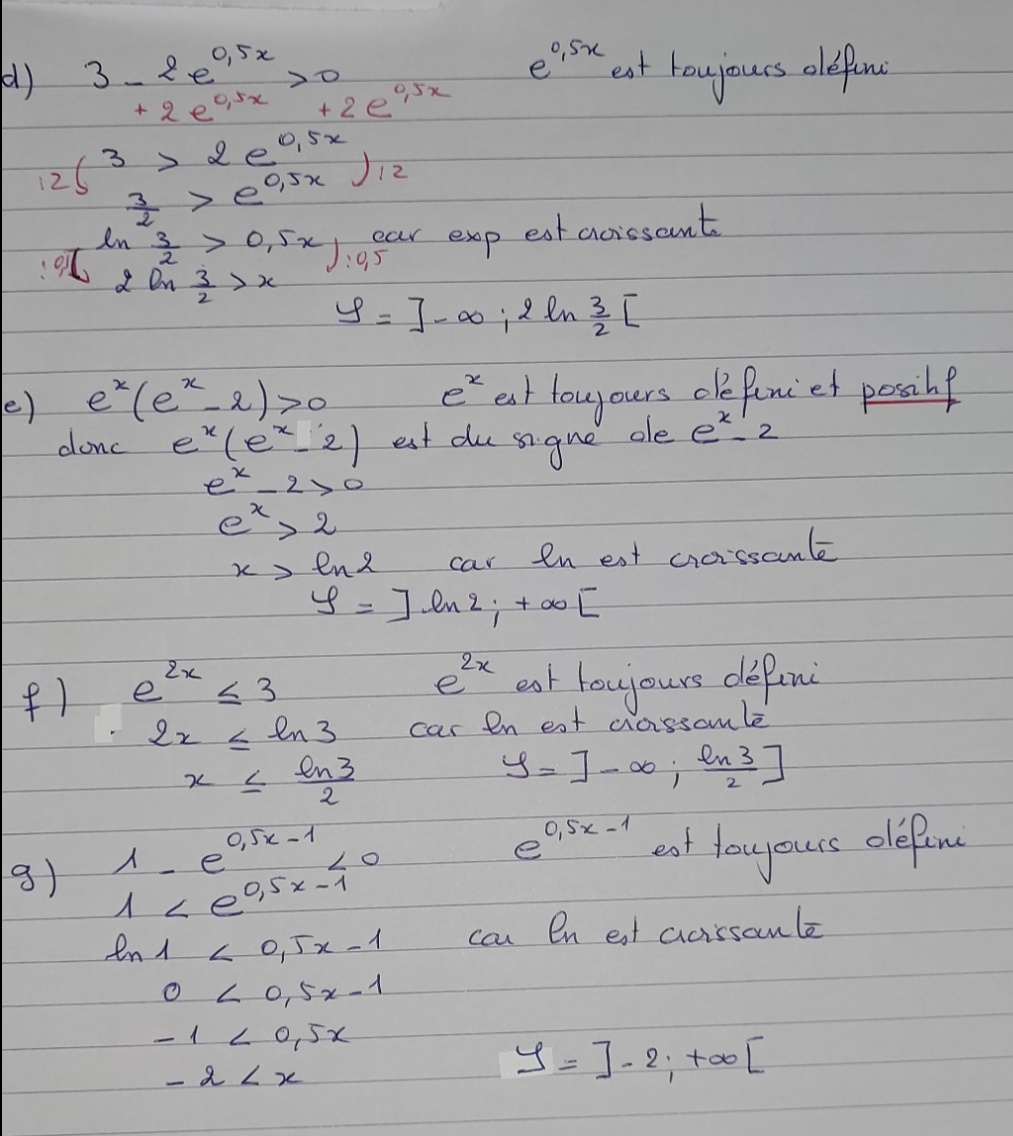 d) 3 - 2e^{0,5x} > 0 e^{0,5x} est toujours défini
+ 2e^{0,5x} + 2e^{0,5x}
3 > 2e^{0,5x}
:2 3/2 > e^{0,5x} :2
ln 3/2 > 0,5x car exp est croissante
:0,5 2 ln 3/2 > x :0,5
S = ]-∞ ; 2 ln 3/2 [
e) e^x(e^x - 2) > 0 e^x est toujours défini et positif
donc e^x(e^x - 2) est du signe de e^x - 2
e^x - 2 > 0
e^x > 2
x > ln 2 car ln est croissante
S = ] ln 2 ; +∞ [
f) e^{2x} ≤ 3 e^{2x} est toujours défini
2x ≤ ln 3 car ln est croissante
x ≤ ln 3/2 S = ]-∞ ; ln 3/2 ]
g) 1 - e^{0,5x-1} < 0 e^{0,5x-1} est toujours défini
1 < e^{0,5x-1}
ln 1 < 0,5x - 1 car ln est croissante
0 < 0,5x - 1
-1 < 0,5x
-2 < x S = ]-2 ; +∞ [